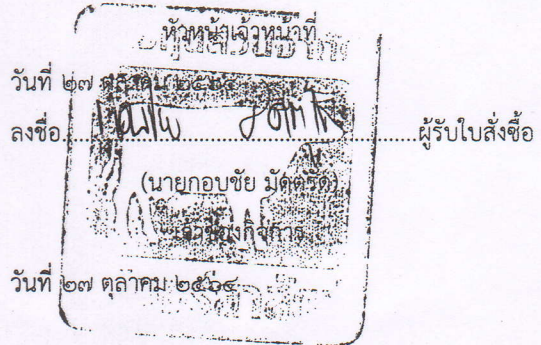 หัวหน้าเจ้าหน้าที่
วันที่ ๒๗ ตุลาคม ๒๕๖๔
ลงชื่อ..........................................................ผู้รับใบสั่งซื้อ
(นายกอบชัย มัดตรัด)
เจ้าของกิจการ
วันที่ ๒๗ ตุลาคม ๒๕๖๔